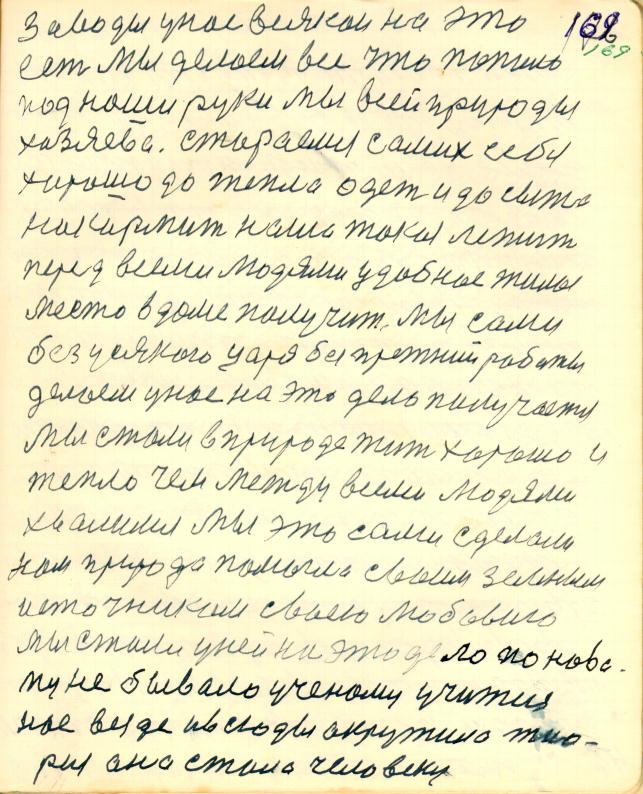 заводы унас всякаи на это 169
сет мы делаем все что попало 169
под наши руки мы всей природы
хозяева. стараемся самих себя
хорошо до тепла одет и до сыта
накармит наша такая лежит
перед всеми людями удобное жилое
место в доме получит. мы сами
без усякого царя без прежний работы
делаем унас на это дело получается
мы стали в природе жит хорошо и
тепло чем между всеми людями
хвалимся мы это сами сделали
нам природа помогла своим земным
источником своею любовию
мы стали уней на это дело по нова-
му не бывало ученому учится
нас везде и всюды акружила тио-
рия она стала человеку